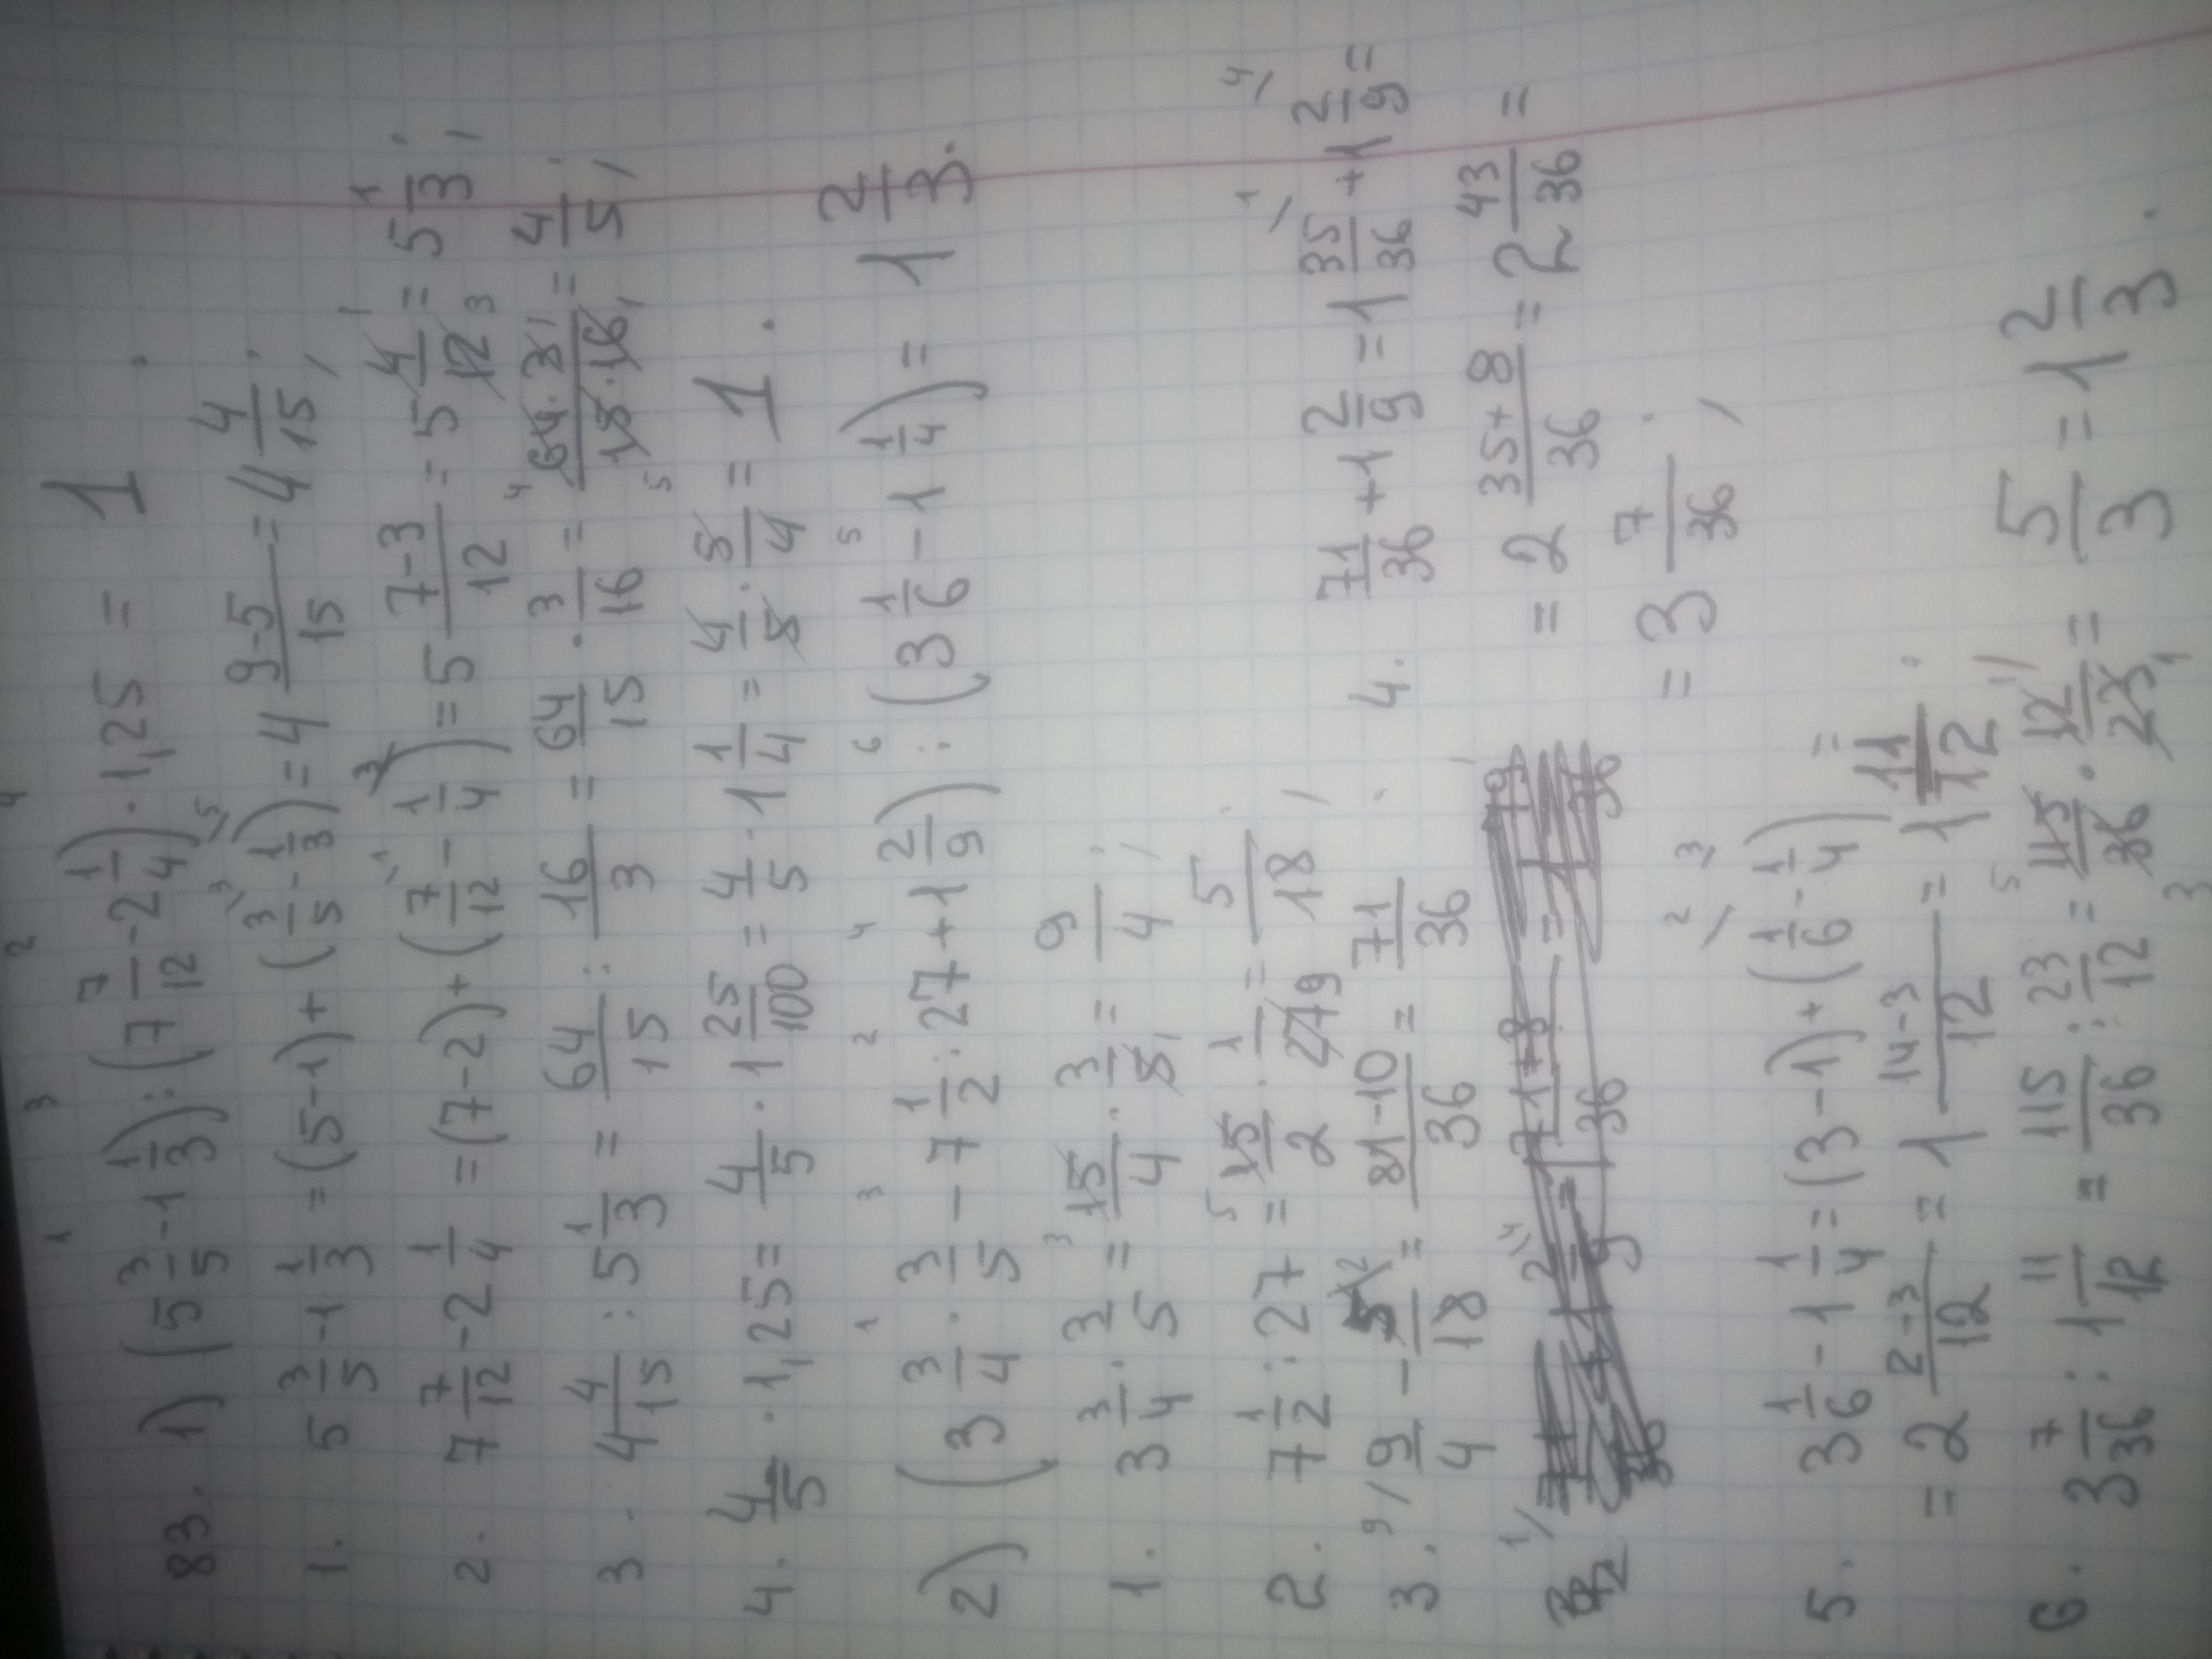 83. 1) (5 3/5 - 1 1/3) : (7 7/12 - 2 1/4) · 1,25 = 1.
1. 5 3/5 - 1 1/3 = (5-1) + (3/5 - 1/3) = 4 (9-5)/15 = 4 4/15;
2. 7 7/12 - 2 1/4 = (7-2) + (7/12 - 1/4) = 5 (7-3)/12 = 5 4/12 = 5 1/3;
3. 4 4/15 : 5 1/3 = 64/15 : 16/3 = 64/15 · 3/16 = (64·3)/(15·16) = 4/5;
4. 4/5 · 1,25 = 4/5 · 1 25/100 = 4/5 · 1 1/4 = 4/5 · 5/4 = 1.
2) (3 3/4 · 3/5 - 7 1/2 : 27 + 1 2/9) : (3 1/6 - 1 1/4) = 1 2/3.
1. 3 3/4 · 3/5 = 15/4 · 3/5 = 9/4;
2. 7 1/2 : 27 = 15/2 · 1/27 = 5/18;
3. 9/4 - 5/18 = (81-10)/36 = 71/36;
4. 71/36 + 1 2/9 = 1 35/36 + 1 2/9 =
= 2 (35+8)/36 = 2 43/36 =
= 3 7/36;
5. 3 1/6 - 1 1/4 = (3-1) + (1/6 - 1/4) =
= 2 (2-3)/12 = 1 (14-3)/12 = 1 11/12;
6. 3 7/36 : 1 11/12 = 115/36 : 23/12 = 115/36 · 12/23 = 5/3 = 1 2/3.